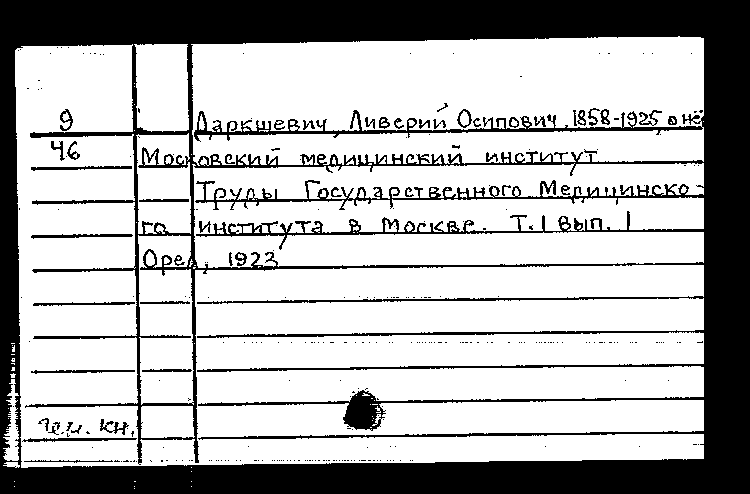 9 Даркшевич, Ливерий Осипович, 1858-1925, о нём
46 Московский медицинский институт
Труды Государственного Медицинско-
го института в Москве. Т.1 Вып. 1
Орел, 1923
Чем. кн.